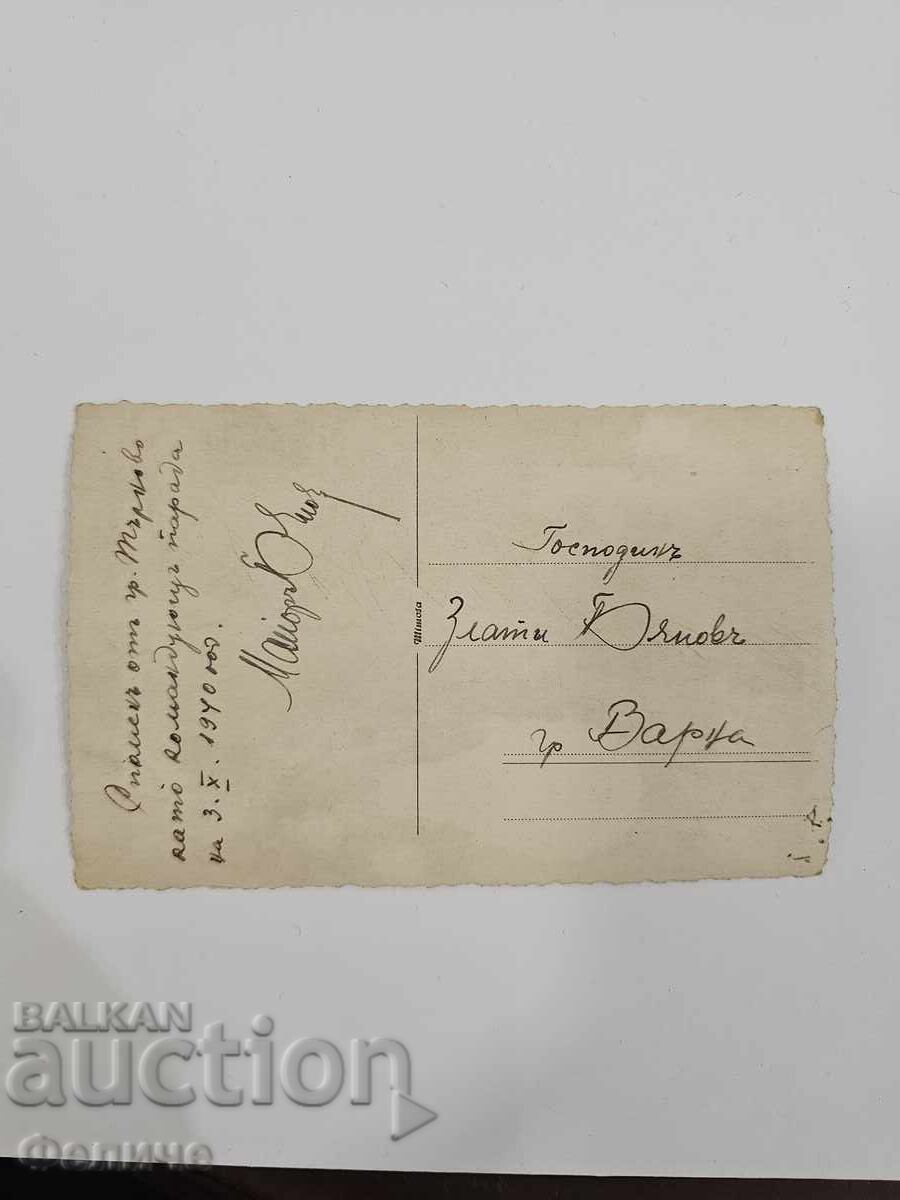 Споменъ отъ гр. Търново
като командующъ парада
на 3. X. 1940 год.
Майоръ
Mimosa
Господинъ
Злати
гр Варна
BALKAN
auction
Феличе